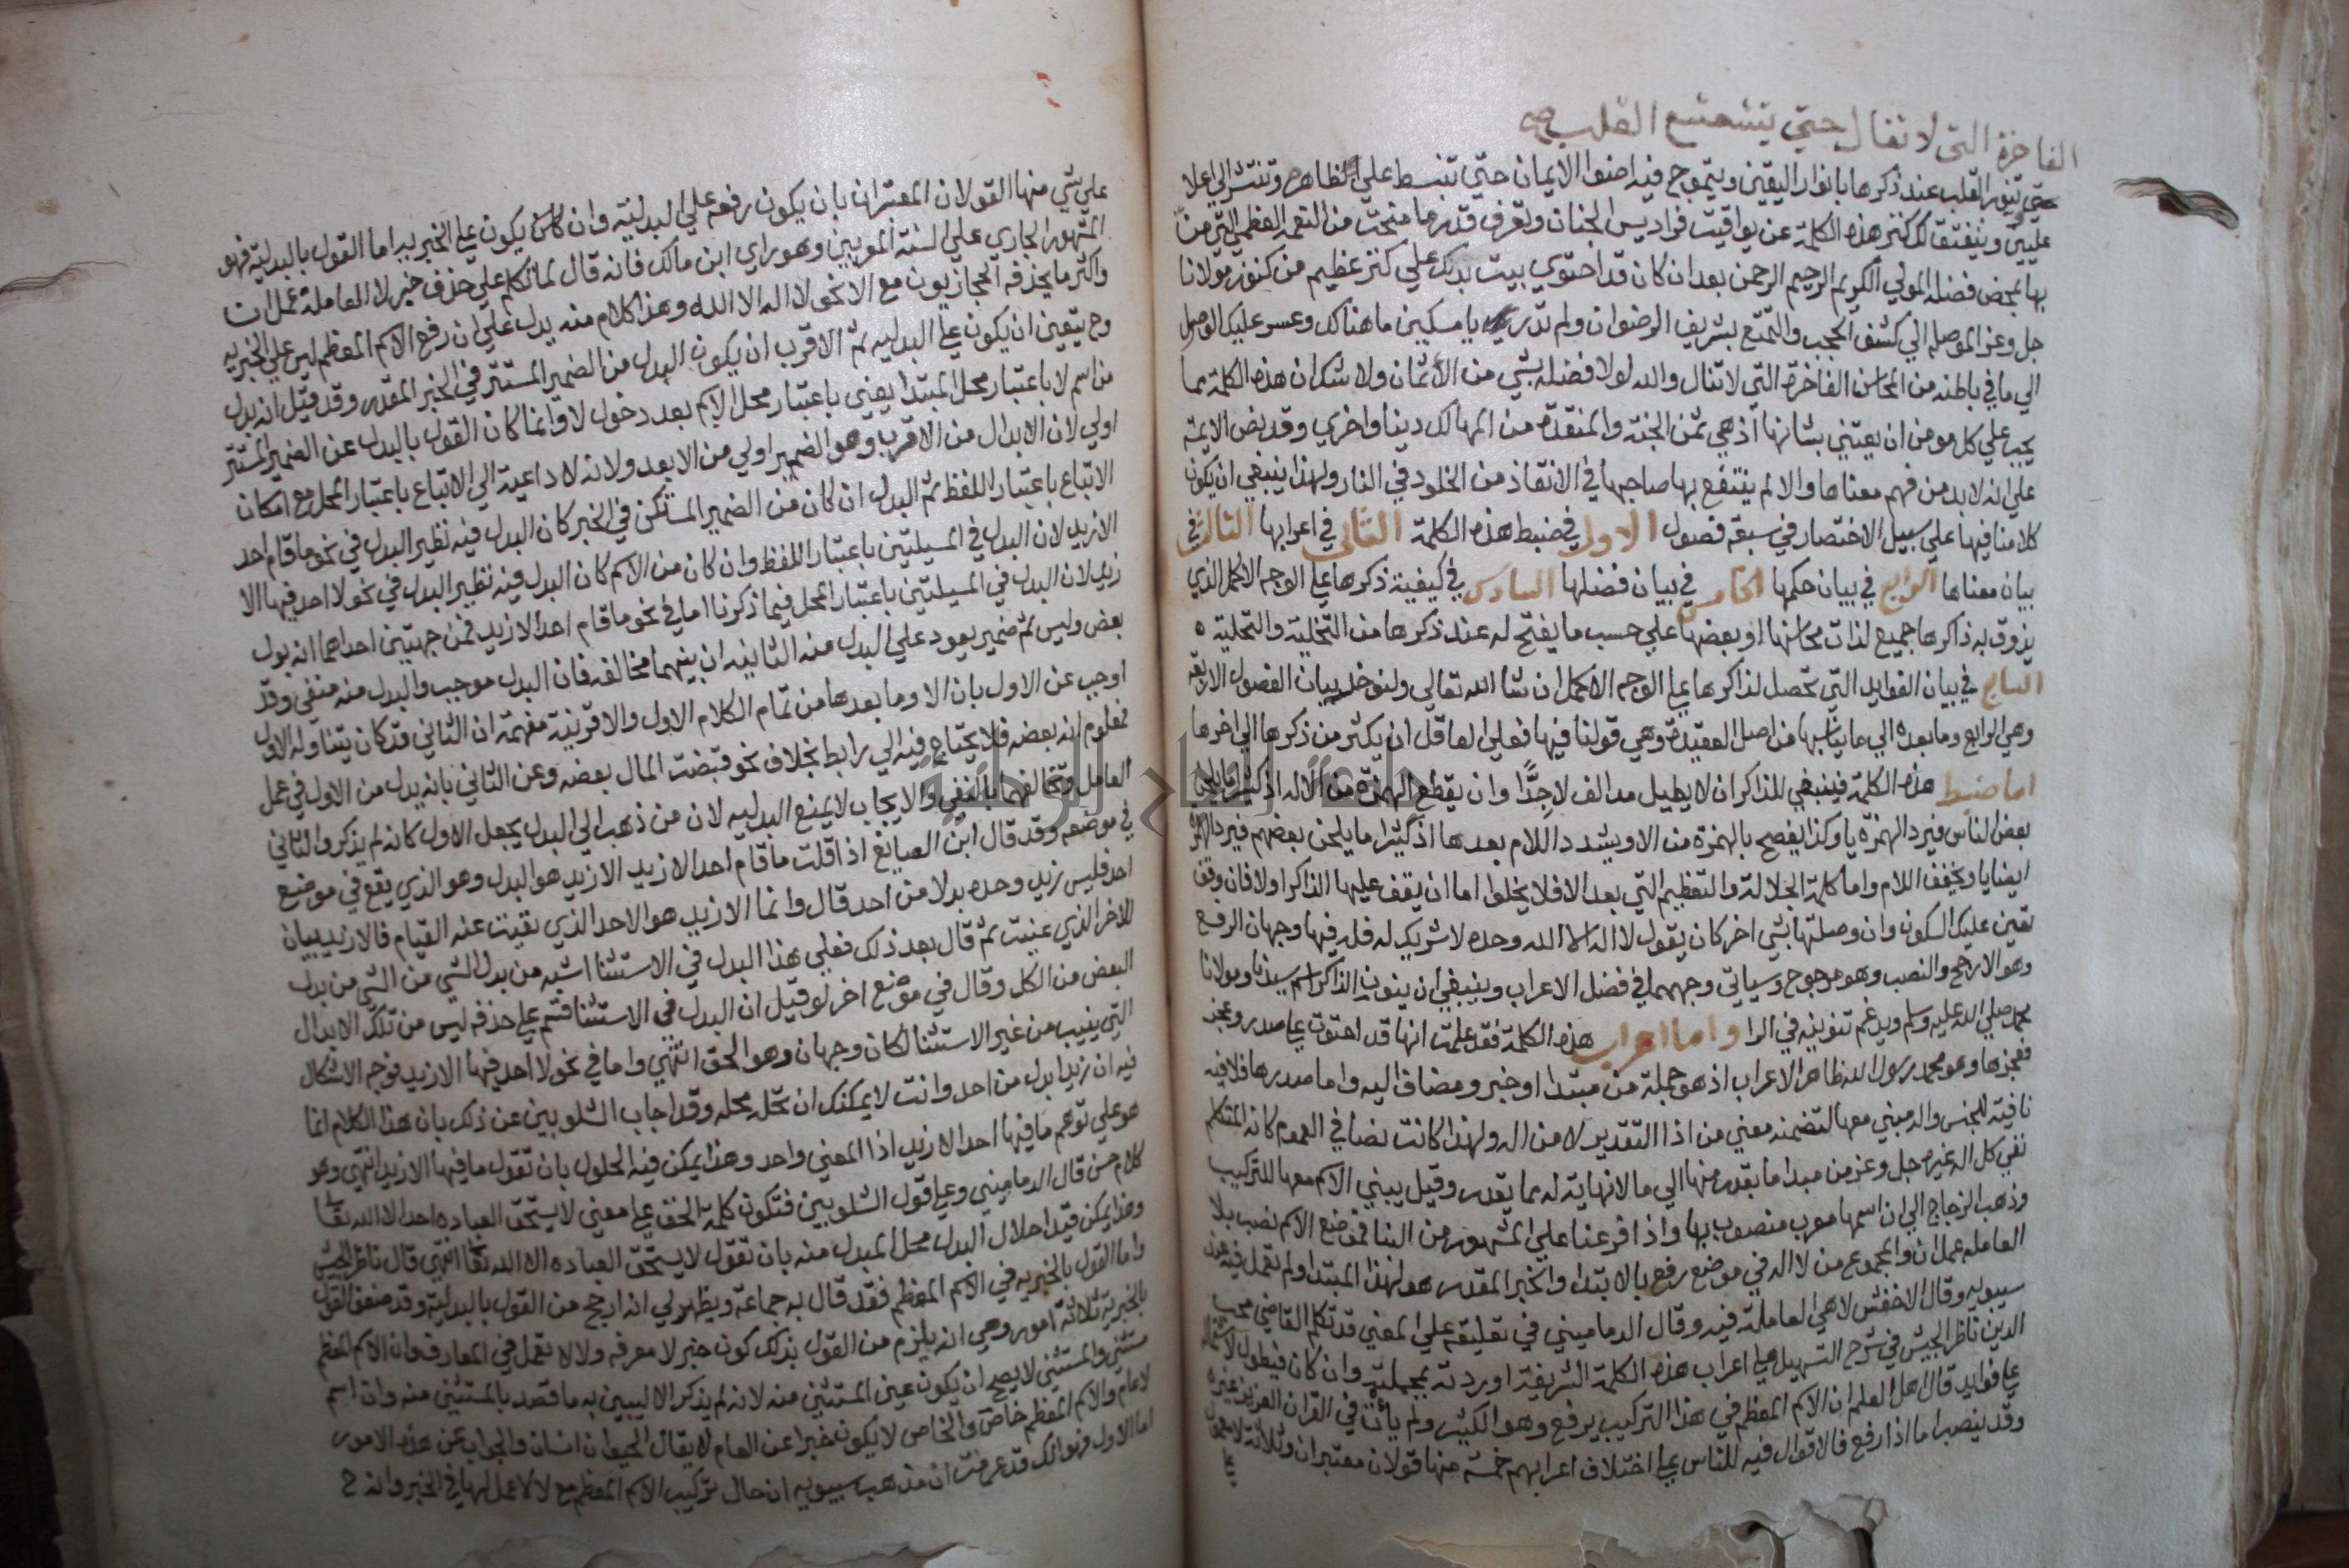 الفاخرة التي لا تنال حتي يتشعشع القلب
حتي يتنور القلب عند ذكرها بانوار اليقين ويتموج فيه اضوا الايمان حتي تنبسط علي الظاهر وتنتشر الي اعلا
عليين وينفتق لك كنز هذه الكلمة عن يواقيت فراديس الجنان ولتعرف قدر ما منحت من النعمة العظمي التي من
بها بمحض فضله المولي الكريم الرحيم الرحمن بعد ان كان قد احتوي بيت بدنك علي كنز عظيم من كنوز مولانا
جل وعز الموصلة الي كشف الحجب والتمتع بشريف الرضوان ولم تدر يا مسكين ما هنالك وعسر عليك الوصول
الي ما في باطنه من المحاسن الفاخرة التي لا تنال والله لولا فضله بشي من الأثمان ولا شك ان هذه الكلمة مما
يجب علي كل مومن ان يعتني بشانها اذ هي ثمن الجنة والمنقذة من المهالك دينا واخري وقد نص الايمة
علي انه لا بد من فهم معناها والا لم ينتفع بها صاحبها في الانقاذ من الخلود في النار ولهذا ينبغي ان يكون
كلامنا فيها علي سبيل الاختصار في سبعة فصول الاول في ضبط هذه الكلمة الثاني في اعرابها الثالث في
بيان معناها الرابع في بيان حكمها الخامس في بيان فضلها السادس في كيفية ذكرها علي الوجه الاكمل الذي
يذوق به ذاكرها جميع لذات محاسنها او بعضها علي حسب ما يفتح له عند ذكرها من التخلية والتحلية ه
السابع في بيان الفوايد التي تحصل لذاكرها علي الوجه الاكمل ان شا الله تعالي ولنوخر بيان الفصول الاربعة
وهي الرابع وما بعده الي ما يناسبها من اصل العقيدة وهي قولنا فيها فعلي العاقل ان يكثر من ذكرها الي اخرها
اما ضبط هذه الكلمة فينبغي للذاكر ان لا يطيل مد الف لا جدًّا وان يقطع الهمزة من الاله اذ كثيرا ما يلحن
بعض الناس فيرد الهمزة يا وكذا يفصح بالهمزة من الا ويشدد اللام بعدها اذ كثيرا ما يلحن بعضهم فيرد الهمزة
ايضا يا ويخفف اللام واما كلمة الجلالة والتعظيم التي بعد الا فلا يخلوا اما ان يقف عليها الذاكر او لا فان وقف
تعين عليك السكون وان وصلتها بشي اخر كان يقول لا اله الا الله وحده لا شريك له فله فيها وجهان الرفع
وهو الارجح والنصب وهو مرجوح وسياتي وجههما في فصل الاعراب وينبغي ان ينون الذاكر اسم سيدنا ومولانا
محمد صلي الله عليه وسلم ويدغم تنوينه في الرا واما اعراب هذه الكلمة فقد علمت انها قد احتوت علي صدر وعجز
فعجزها وهو محمد رسول الله ظاهر الاعراب اذ هو جملة من مبتدا وخبر ومضاف اليه واما صدرها فلا فيه
نافية للجنس واله مبني معها لتضمنه معني من اذا التقدير لا من اله ولهذا كانت نصا في العموم كانه المتكلم
نفي كل اله غيره جل وعز من مبدا ما يقدر منها الي ما لا نهاية له مما يقدر وقيل يبني الاسم معها للتركيب
وذهب الزجاج الي ان اسمها معرب منصوب بها واذا فرعنا علي المشهور من البنا فموضع الاسم نصب بلا
العاملة عمل ان والمجموع من لا اله في موضع رفع بالابتدا والخبر المقدر هو لهذا المبتدا ولم تعمل فيه عند
سيبويه وقال الاخفش لا هي العاملة فيه وقال الدماميني في تعليقه علي المغني قد تكلم القاضي محب
الدين ناظر الجيش في شرح التسهيل علي اعراب هذه الكلمة الشريفة اوردته بجملته وان كان فيطول لاشتماله
علي فوايد قال اهل العلم ان الاسم المعظم في هذا التركيب يرفع وهو الكثير ولم يات في القران العزيز غيره
وقد ينصب اما اذا رفع فالاقوال فيه للناس علي اختلاف اعرابهم خمسة منها قولان معتبران وثلاثة لا معول
علي شي منها القولان المعتبران بان يكون رفعه علي البدلية وان يكون علي الخبريه اما القول بالبدلية فهو
المشهور الجاري علي السنة المعربين وهو راي ابن مالك فانه قال لما تكلم علي حذف خبر لا العاملة عمل ان
واكثر ما يحذفه الحجازيون مع الا نحو لا اله الا الله وهذا كلام منه يدل علي ان رفع الاسم المعظم ليس علي الخبريه
وح يتعين ان يكون علي البدليه ثم الاقرب ان يكون البدل من الضمير المستتر في الخبر المقدر وقد قيل انه بدل
من اسم لا باعتبار محل المبتدا يعني باعتبار محل الاسم بعد دخول لا وانما كان القول بالبدل عن الضمير المستتر
اولي لان الابدال من الاقرب وهو الضمير اولي من الابعد ولانه لا داعية الي الاتباع باعتبار المحل مع امكان
الاتباع باعتبار اللفظ ثم البدل ان كان من الضمير المستكن في الخبر كان البدل فيه نظير البدل في نحو ما قام احد
الا زيد لان البدل في المسيلتين باعتبار اللفظ وان كان من الاسم كان البدل فيه نظير البدل في نحو لا احد فيها الا
زيد لان البدل في المسيلتين باعتبار المحل فيما ذكرنا اما في نحو ما قام احد الا زيد فمن جهتين احداهما انه بدل
بعض وليس ثم ضمير يعود علي البدل منه الثانيه ان بينهما مخالفه فان البدل موجب والبدل منه منفي وقد
اوجب عن الاول بان الا وما بعدها من تمام الكلام الاول والا قرينة مفهمة ان الثاني قد كان يتناوله الاول
فمعلوم انه بعضه فلا يحتاج فيه الي رابط بخلاف نحو قبضت المال بعضه وعن الثاني بانه بدل من الاول في عمل
العامل وتخالفهما بالنفي والايجاب لا يمنع البدليه لان من ذهب الي البدل يجعل الاول كانه لم يذكر والثاني
في موضعه وقد قال ابن الصايغ اذا قلت ما قام احد الا زيد الا زيد هو البدل وهو الذي يقع في موضع
احد فليس زيد وحده بدلا من احد قال وانما الا زيد هو الاحد الذي نفيت عنه القيام فالا زيد بيان
للاخر الذي عنيت ثم قال بعد ذلك فعلي هذا البدل في الاستثنا اشبه من بدل الشي من الشي من بدل
البعض من الكل وقال في موضع اخر لو قيل ان البدل في الاستثنا قسم علي حذفه ليس من تلك الابدال
التي يبيت من غير الاستثنا لكان وجها وهو الحق انتهي واما في نحو لا احد فيها الا زيد فوجه الاشكال
فيه ان زيدا بدل من احد وانت لا يمكنك ان تحله محله وقد اجاب الشلوبين عن ذلك بان هذا الكلام انما
هو علي توهم ما فيها احد الا زيد اذا المعني واحد وهذا يمكن فيه الحلول بان تقول ما فيها الا زيد انتهي وهو
كلام حسن قال الدماميني وعلي قول الشلوبين فتكون كلمة الحق علي معني لا يستحق العباده احد الا الله تعا
وهذا يمكن فيه احلال البدل محل المبدل منه بان تقول لا يستحق العباده الا الله تعا انتهي قال ناظر الجيش
واما القول بالخبريه في الاسم المعظم فقد قال به جماعة ويظهر لي انه ارجح من القول بالبدلية وقد ضعف القول
بالخبرية ثلاثة امور وهي انه يلزم من القول بذلك كون خبر لا معرفه ولا لا تعمل في المعارف وان الاسم المعظم
مستثني والمستثني لا يصح ان يكون عين المستثني منه لانه لم يذكر الا ليبين به ما قصد بالمستثني منه وان اسم
لا عام والاسم المعظم خاص والخاص لا يكون خبرا عن العام لا يقال الحيوان انسان والجواب عن هذه الامور
اما الاول فهو انك قد عرفت ان مذهب سيبويه ان حال تركيب الاسم المعظم مع لا لا عمل لها في الخبر وانه ح
جامعة النجاح الوطنية